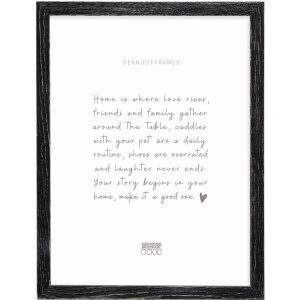 DEKNUDT FRAMES
Home is where love rises,
friends and family gather
around the table, cuddles
with your pet are a daily
routine, shoes are overrated
and laughter never ends.
Your story begins in your
home, make it a good one.